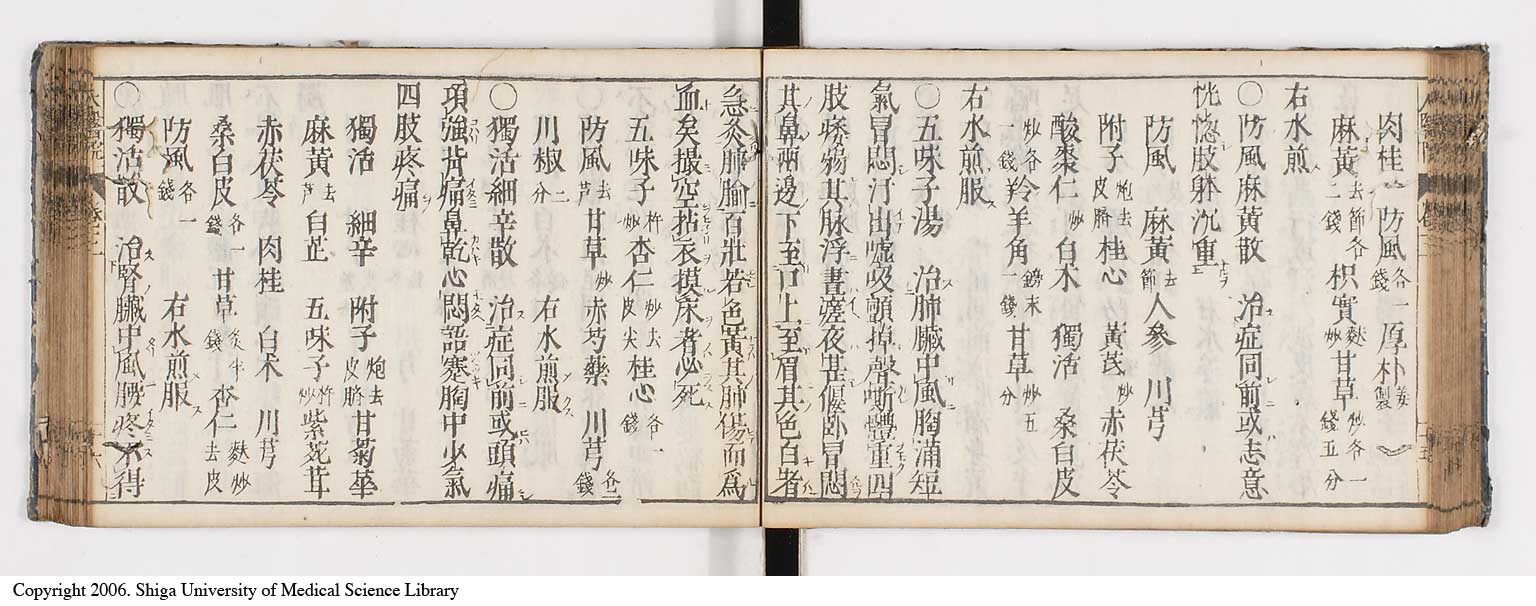 肉桂 防風各一錢 厚朴姜製
麻黃去節各二錢 枳實麩炒 甘草炒各一錢五分
右水煎
〇防風麻黃散 治症同前或志意
恍惚肢躰沉重
防風 麻黃去節 人參 川芎
附子炮去皮臍 桂心 黃芪炒 赤茯苓
酸棗仁炒 白木 獨活 桑白皮
炒各一錢 羚羊角鎊末一錢 甘草炒五分
右水煎服
〇五味子湯 治肺臟中風胸滿短
氣冒悶汗出噓吸顫掉聲嘶體重四
肢痿弱其脉浮晝瘥夜甚偃卧冒悶
其鼻兩邊下至口上至眉其色白者
急灸肺腧百壯若色黃其肺傷而爲
血矣撮空拈衣摸床者必死
五味子杵炒 杏仁炒去皮尖 桂心各一錢
防風去芦 甘草炒 赤芍藥 川芎各一錢
川椒二分 右水煎服
〇獨活細辛散 治症同前或頭痛
項強背痛鼻乾心悶語蹇胸中少氣
四肢疼痛
獨活去芦 細辛 附子炮去皮臍 甘菊華
麻黃去 白芷 五味子杵炒 紫菀茸
赤茯苓 肉桂 白朮 川芎
桑白皮各一錢 甘草炙半錢 杏仁麩炒去皮
防風各一錢 右水煎服
〇獨活散 治腎臟中風腰疼不得
Copyright 2006. Shiga University of Medical Science Library